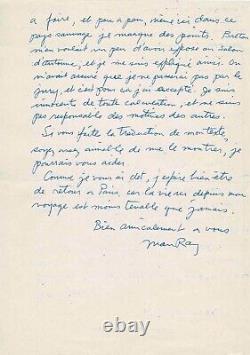 a faire, et peu a peu, même ici dans ce
pays sauvage je marque des points. Breton
m'en voulait un peu d'avoir exposé au Salon
d'automne, et je me suis expliqué ainsi. On
m'avait assuré que je ne passerai pas par le
jury, et c'est pour ça j'ai accepté. Je suis
innocent de toute calculation, et ne suis
pas responsable des motives des autres.
Si vous faites la traduction de mon texte,
soyez assez aimable de me le montrer, je
pourrais vous aider.
Comme je vous ai dit, j'espère bien être
de retour a Paris, car la vie ici depuis mon
voyage est moins tenable que jamais.
Bien amicalement a vous
Man Ray